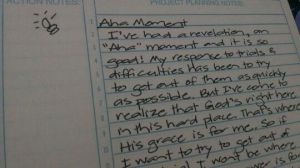 ACTION NOTES:
PROJECT PLANNING NOTES:
1 Aha Moment
2 I've had a revelation, an
3 "Aha" moment and it is so
4 good! My response to trials &
5 difficulties has been to try
6 to get out of them as quickly
7 as possible. But I've come to
8 realize that God's right here
9 in this hard place. That's where
10 His grace is for me. So if
11 I want to try to get out of
I won't be where
is for